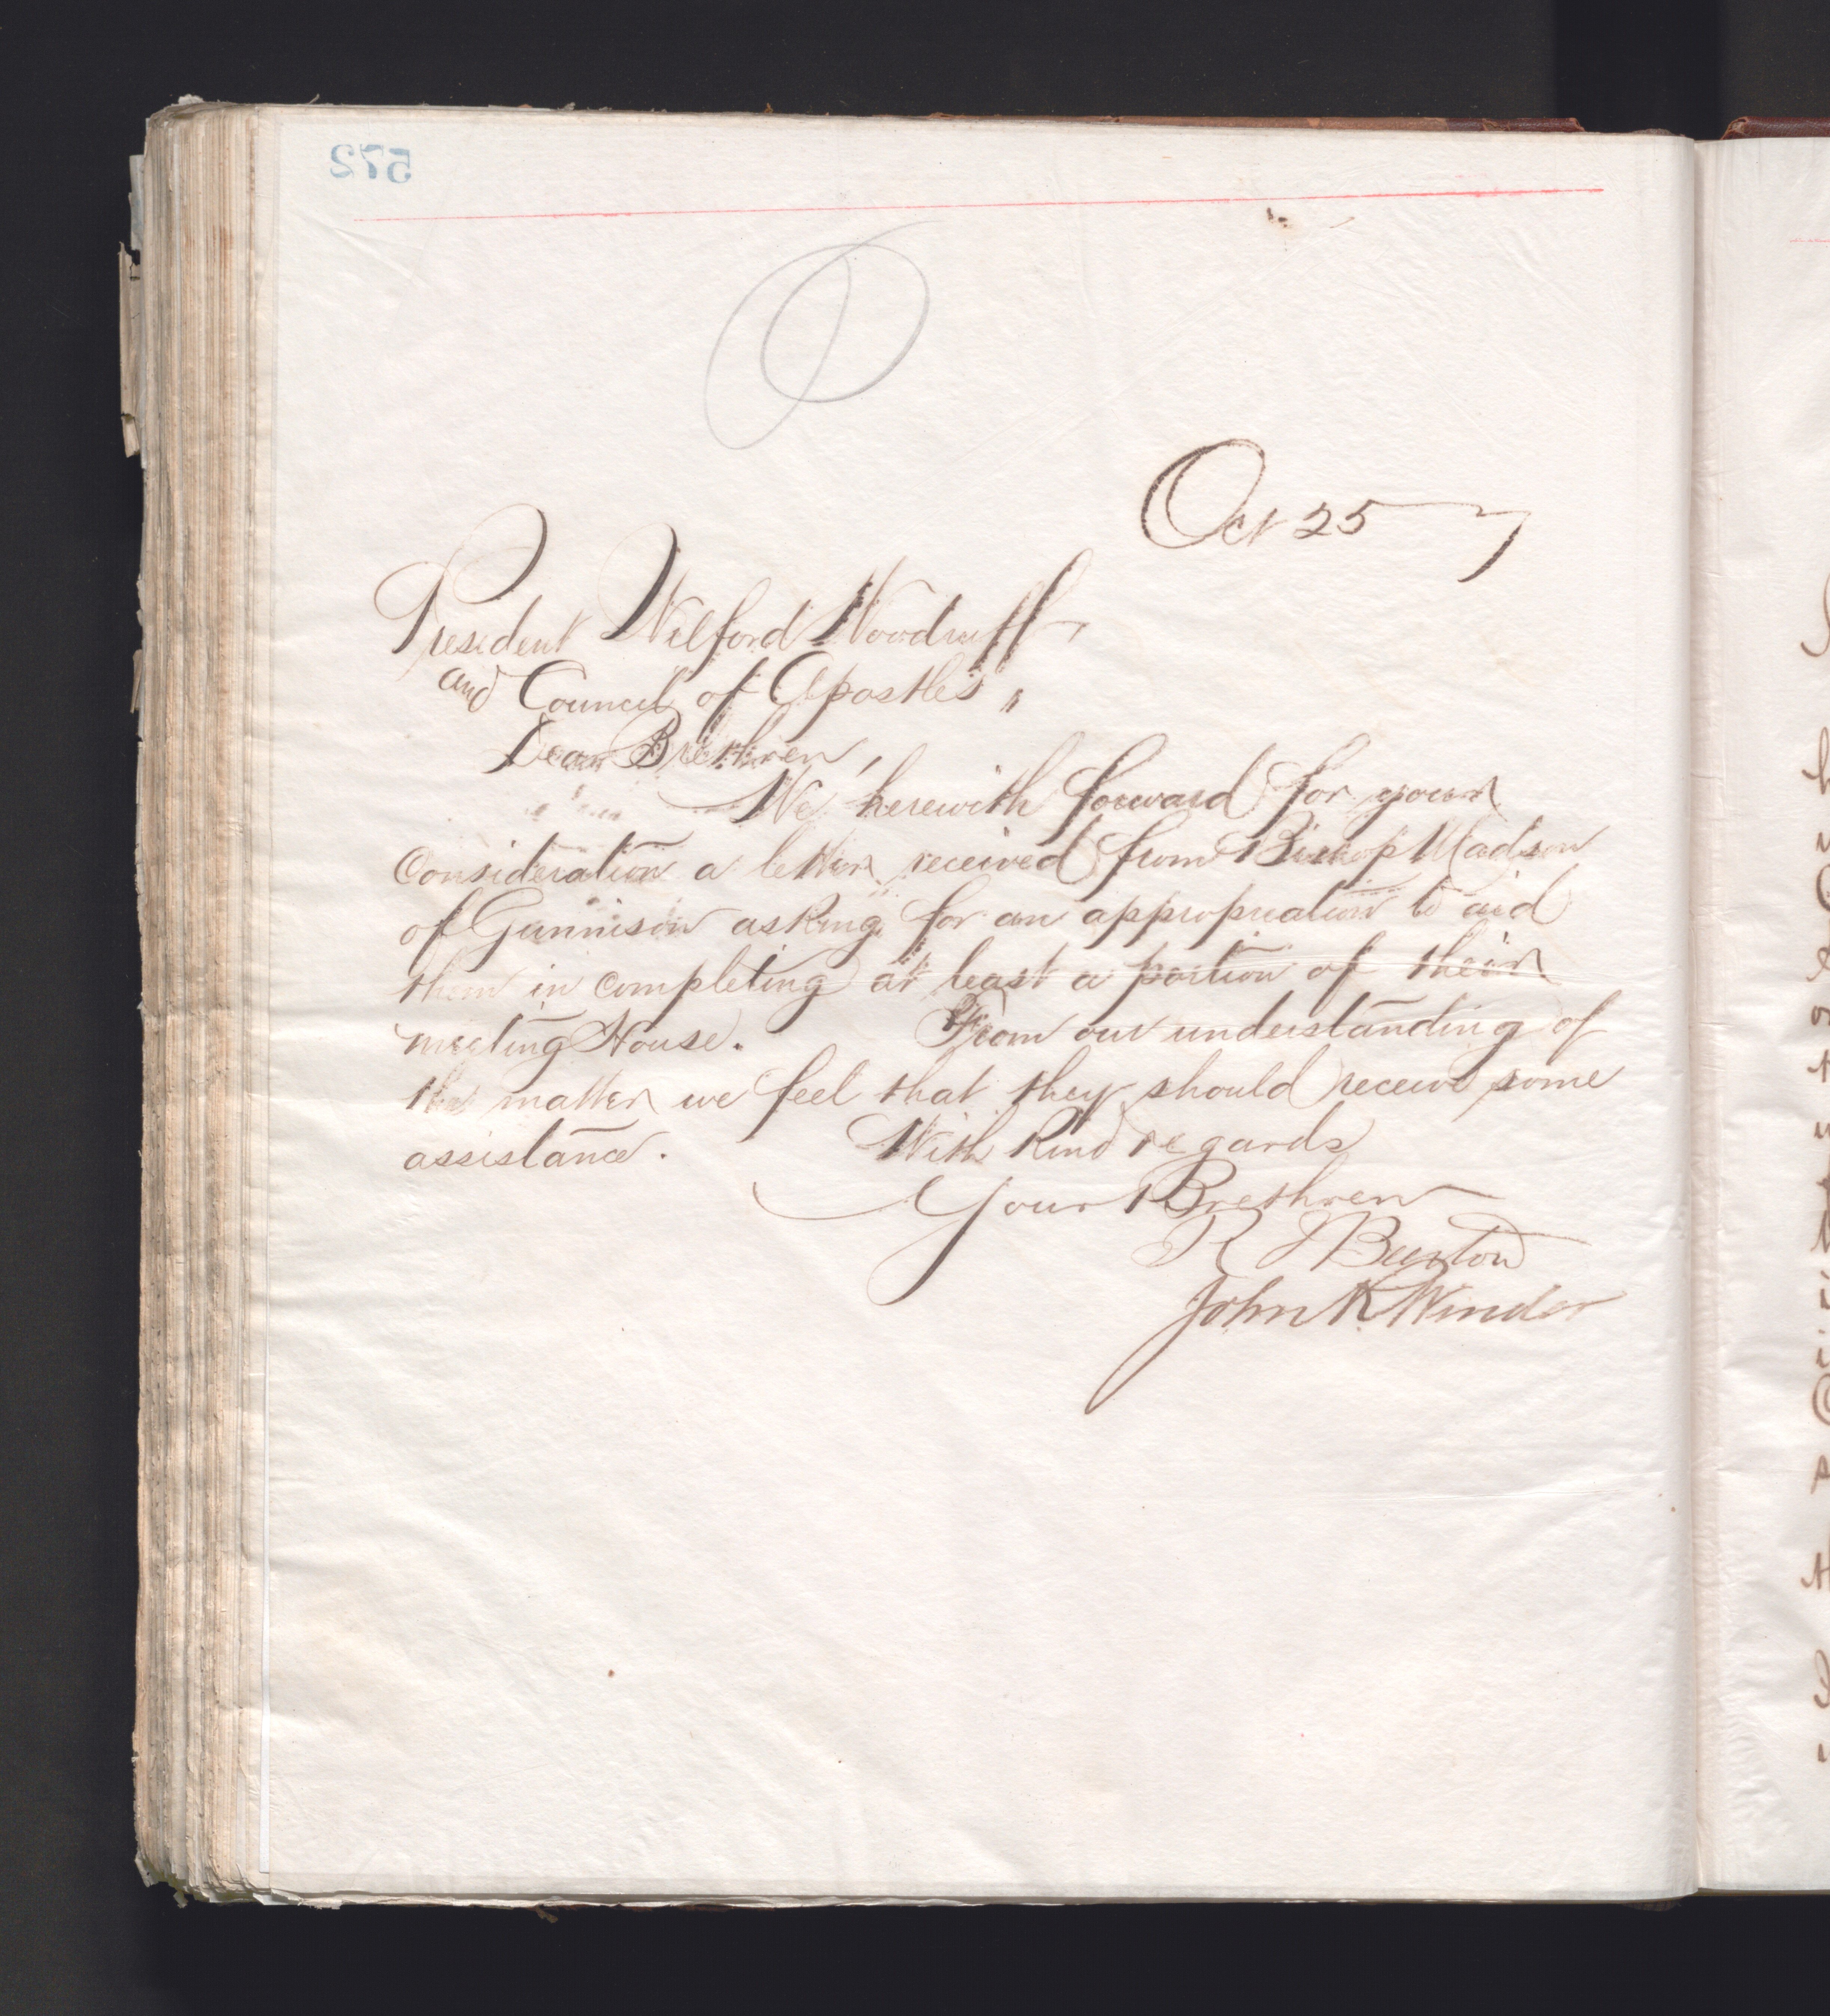 572
Oct 25 7
President Wilford Woodruff
and Council of Apostles,
Dear Brethren,
We herewith forward for your
consideration a letter received from Bishop Madson
of Gunnison asking for an appropriation to aid
them in completing at least a portion of their
meeting House. From our understanding of
the matter we feel that they should receive some
assistance. With Kind regards
Your Brethren
R J Burton
John R Winder